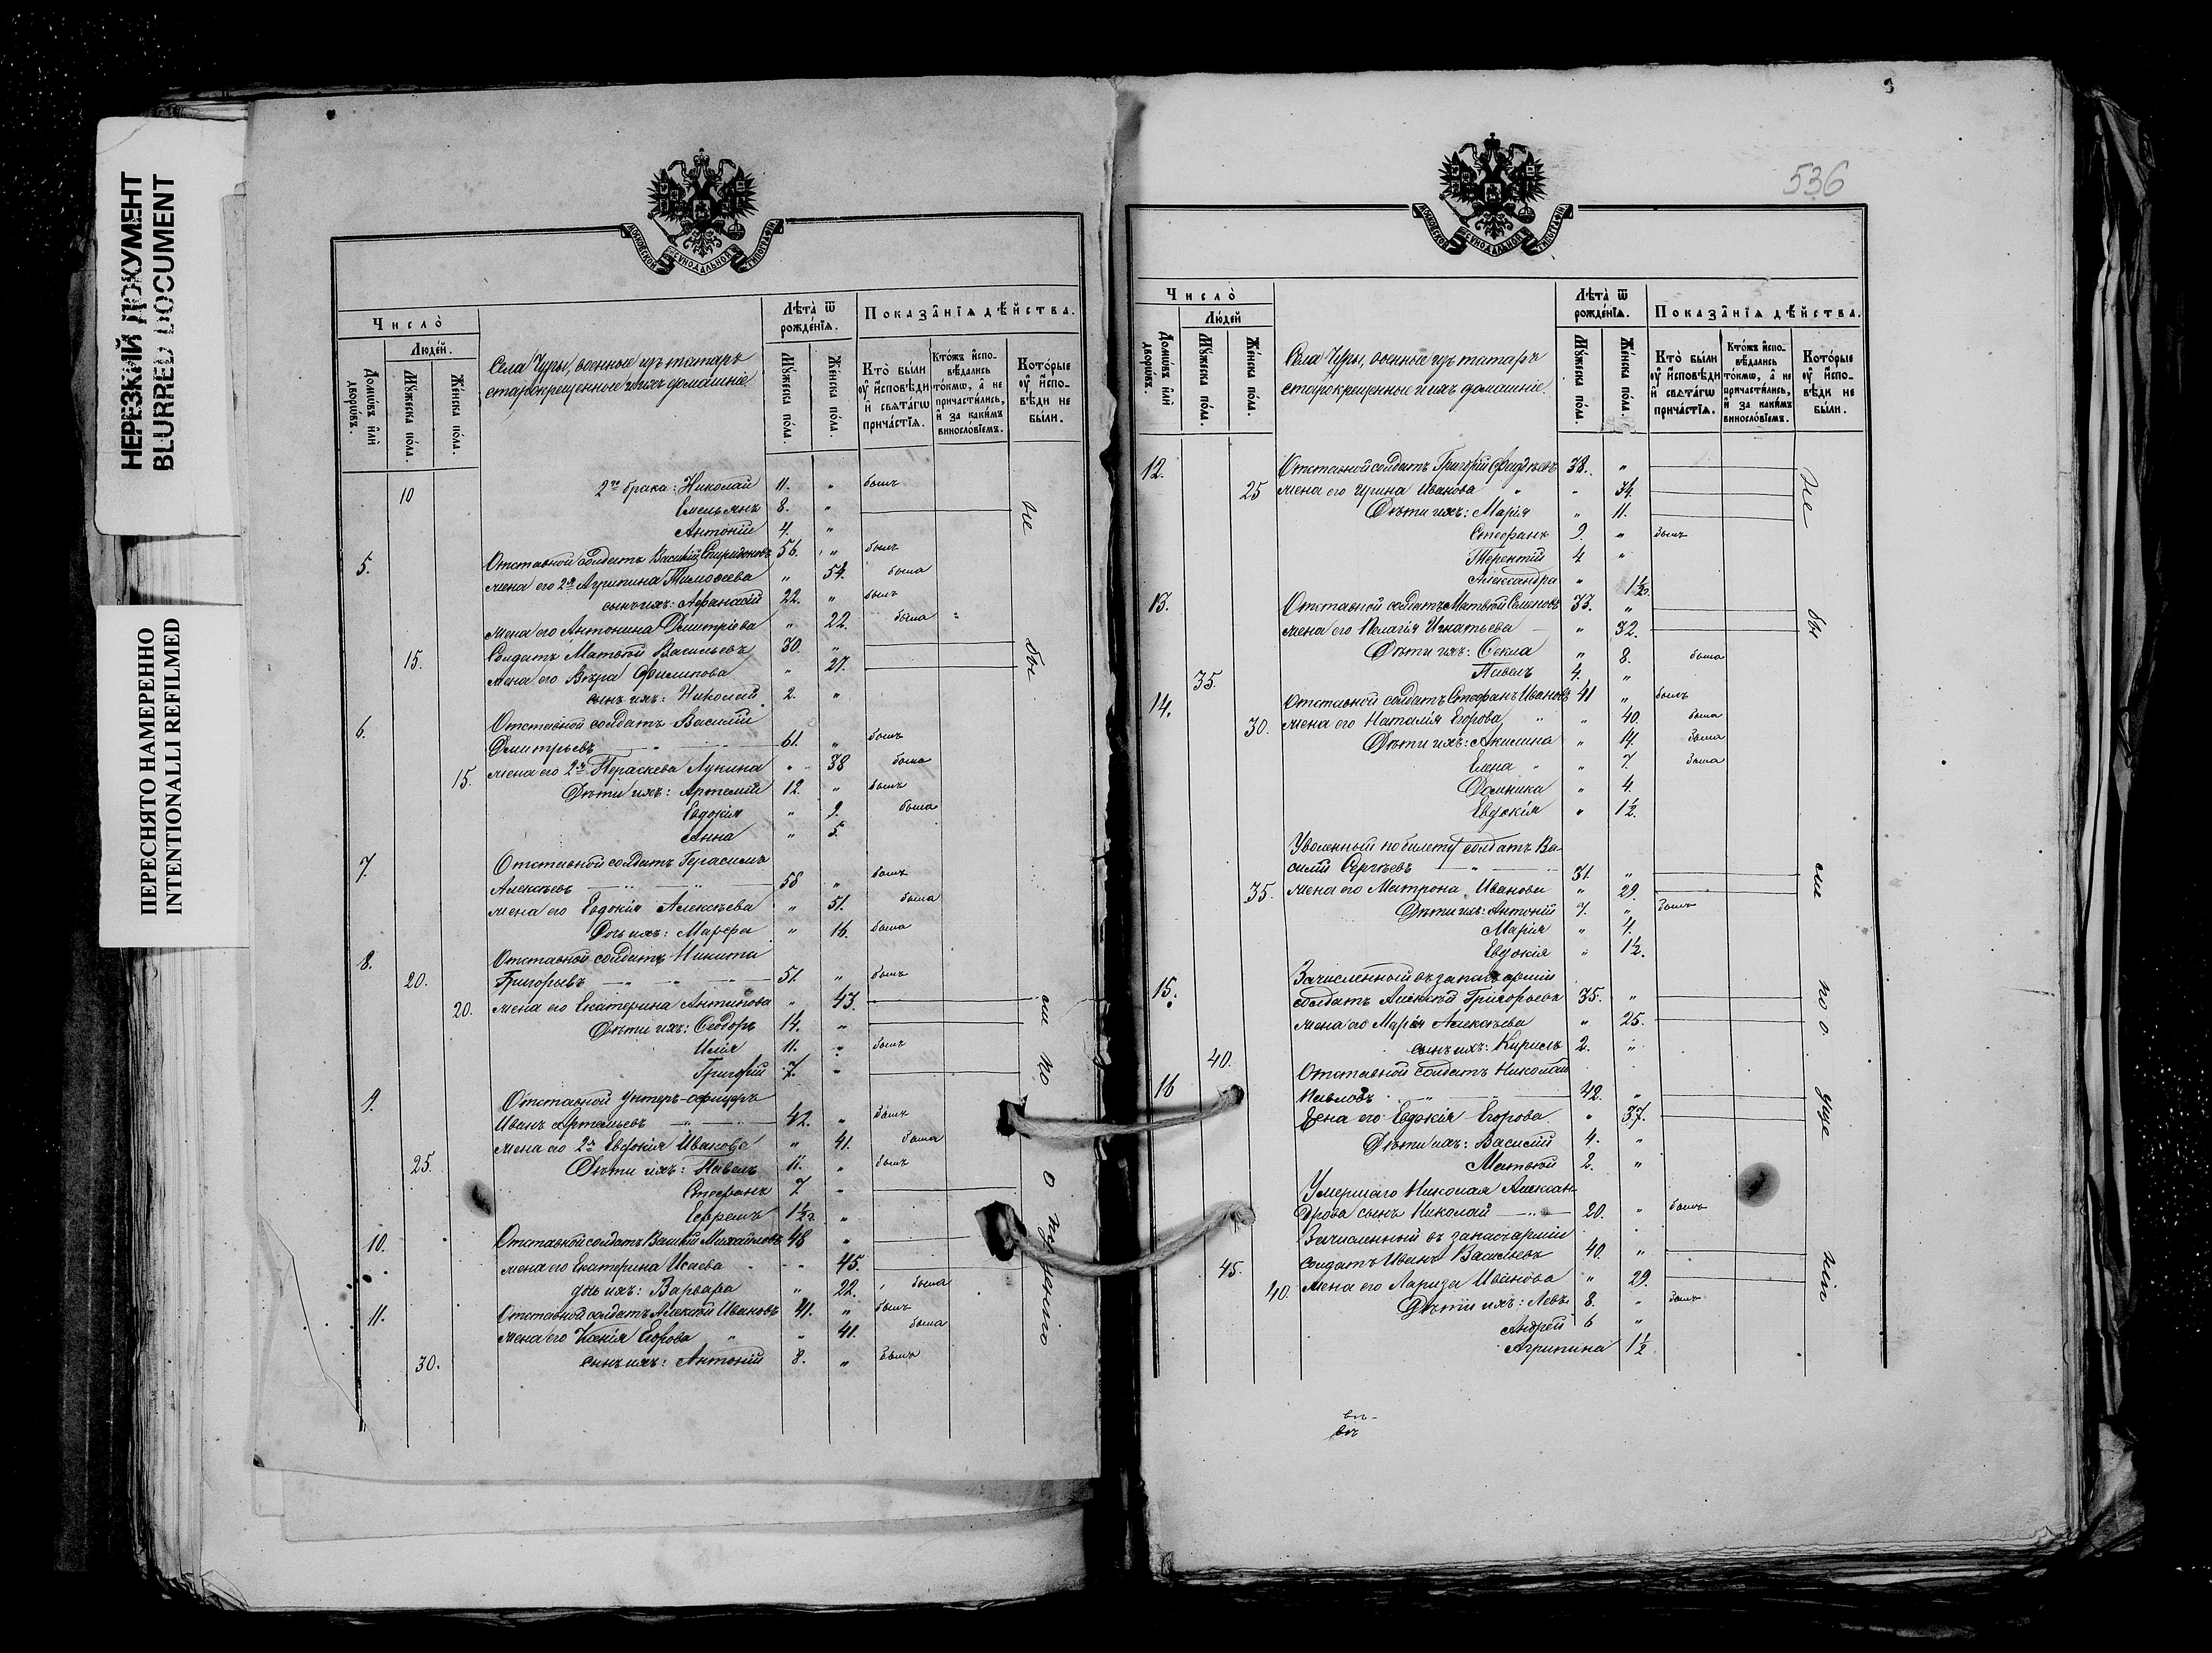 НЕРЕЗКИЙ ДОКУМЕНТ
BLURRED DOCUMENT
ПЕРЕСНЯТО НАМЕРЕННО
INTENTIONALLI REFILMED
МОСКОВСКОЙ СѴНОДАЛЬНОЙ ТИПОГРАФІИ
Число̀
Людей.
Домѡ́въ и҆лѝ дворѡ́въ.
Мꙋ́жеска по́ла.
Же́нска по́ла.
Села Чуры, военные изъ татаръ
старокрещенные и ихъ домашніе
Лѣта̀ ѿ рожде́нїѧ.
Мꙋ́жеска по́ла.
Же́нска по́ла.
Показа̑нїѧ дѣ́йства.
Кто̀ бы́ли ᲂу҆ и҆́сповѣди и҆ свѧта́гѡ прича́стїѧ.
Кто́жъ и҆спо- вѣ́дались то́кмѡ, а҆ не причасти́лись, и҆ за каки́мъ винослові́емъ.
Кото́рые ᲂу҆ и҆́спо- вѣди не бы́ли.
10 2го брака: Николай 11. " былъ
Емельянъ 8. "
Антоній 4. "
5. Отставной солдатъ Василій Спиридоновъ 56. " былъ
жена его 2я Агрипина Тимоѳеева " 54. была
сынъ ихъ: Аѳанасій 22. " былъ
жена его Антонина Дмитріева " 22. была
15. Солдатъ Матвѣй Васильевъ 30. "
жена его Вѣра Филипова " 27.
сынъ ихъ: Николай 2. "
6. Отставной солдатъ Василій
Дмитрьевъ 61. " былъ
15. жена его 2я Параскева Лукина " 38 была
Дѣти ихъ: Артемій 12. " былъ
Евдокія " 9. была
Анна " 5.
7. Отставной солдатъ Герасимъ
Алексѣевъ 58 " былъ
жена его Евдокія Алексѣева " 51. была
Дочь ихъ: Марѳа " 16. была
8. Отставной солдатъ Никита
20. Григорьевъ 51. " былъ
20. жена его Екатерина Антипова " 43.
Дѣти ихъ: Ѳеодоръ 14. "
Илія 11. " былъ
Григорій 7. "
9. Отставной унтеръ-офицеръ
Иванъ Артемьевъ 42. " былъ
жена его 2я Евдокія Иванова " 41. была
25. Дѣти ихъ: Павелъ 11. " былъ
Стефанъ 7 "
Ефремъ 1 1/2 "
10. Отставной солдатъ Василій Михайловъ 48 "
жена его Екатерина Исаева " 45.
дочь ихъ: Варвара " 22. была
11. Отставной солдатъ Алексѣй Ивановъ 41. " былъ
жена его Ксенія Егорова " 41. была
30. сынъ ихъ: Антоній 8. " былъ
не бы ли по нераденію
536
МОСКОВСКОЙ СѴНОДАЛЬНОЙ ТИПОГРАФІИ
Число̀
Людей
Домѡ́въ и҆лѝ дворѡ́въ.
Мꙋ́жеска по́ла.
Же́нска по́ла.
Села Чуры, военные изъ татаръ
старокрещенные и ихъ домашніе.
Лѣта̀ ѿ рожде́нїѧ.
Мꙋ́жеска по́ла.
Же́нска по́ла.
Показа̑нїѧ дѣ́йства.
Кто̀ бы́ли ᲂу҆ и҆́сповѣди и҆ свѧта́гѡ прича́стїѧ.
Кто́жъ и҆спо- вѣ́дались то́кмѡ, а҆ не причасти́лись, и҆ за каки́мъ винослові́емъ.
Кото́рые ᲂу҆ и҆́спо- вѣди не бы́ли.
12. Отставной солдатъ Григорій 38. "
25 жена его Ирина Иванова " 34.
Дѣти ихъ: Марія " 11.
Стефанъ 9. " былъ
Терентій 4 "
Александра " 1 1/2.
13. Отставной солдатъ Матвѣй Семеновъ 33. "
жена его Пелагія Игнатьева " 32.
Дѣти ихъ: Ѳекла " 8. была
35. Павелъ 4. "
14. Отставной солдатъ Стефанъ Ивановъ 41 " былъ
30. жена его Наталія Егорова " 40. была
Дѣти ихъ: Акилина " 14. была
Елена " 7. была
Домника " 4.
Евдокія " 1 1/2.
Уволенный по билету солдатъ Ва-
силій Сергѣевъ 31. "
35. жена его Матрона Иванова " 29.
Дѣти ихъ: Антоній 7. " былъ
Марія " 4.
Евдокія " 1 1/2.
15. Зачисленный въ запасъ арміи
солдатъ Алексѣй Григорьевъ 35. "
жена его Марія Алексѣева " 25.
40. сынъ ихъ: Кирилъ 2. "
Отставной солдатъ Николай
16 Павловъ 42. "
Жена его Евдокія Егорова. " 37.
Дѣти ихъ: Василій 4. "
Матвѣй 2. "
Умершаго Николая Алексан-
дрова сынъ Николай 20. " былъ
Зачисленный въ запасъ арміи
45. солдатъ Иванъ Васильевъ 40. "
40. жена его Лариса Иванова " 29.
Дѣти ихъ: Левъ 8. " былъ
Андрей 6 "
Агрипина 1 1/2
не бы ли по о